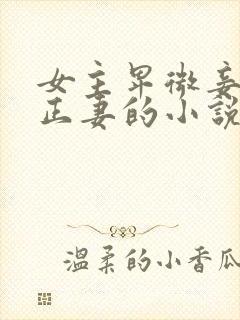 女主卑微妾
正妻的小說
温柔的小香瓜